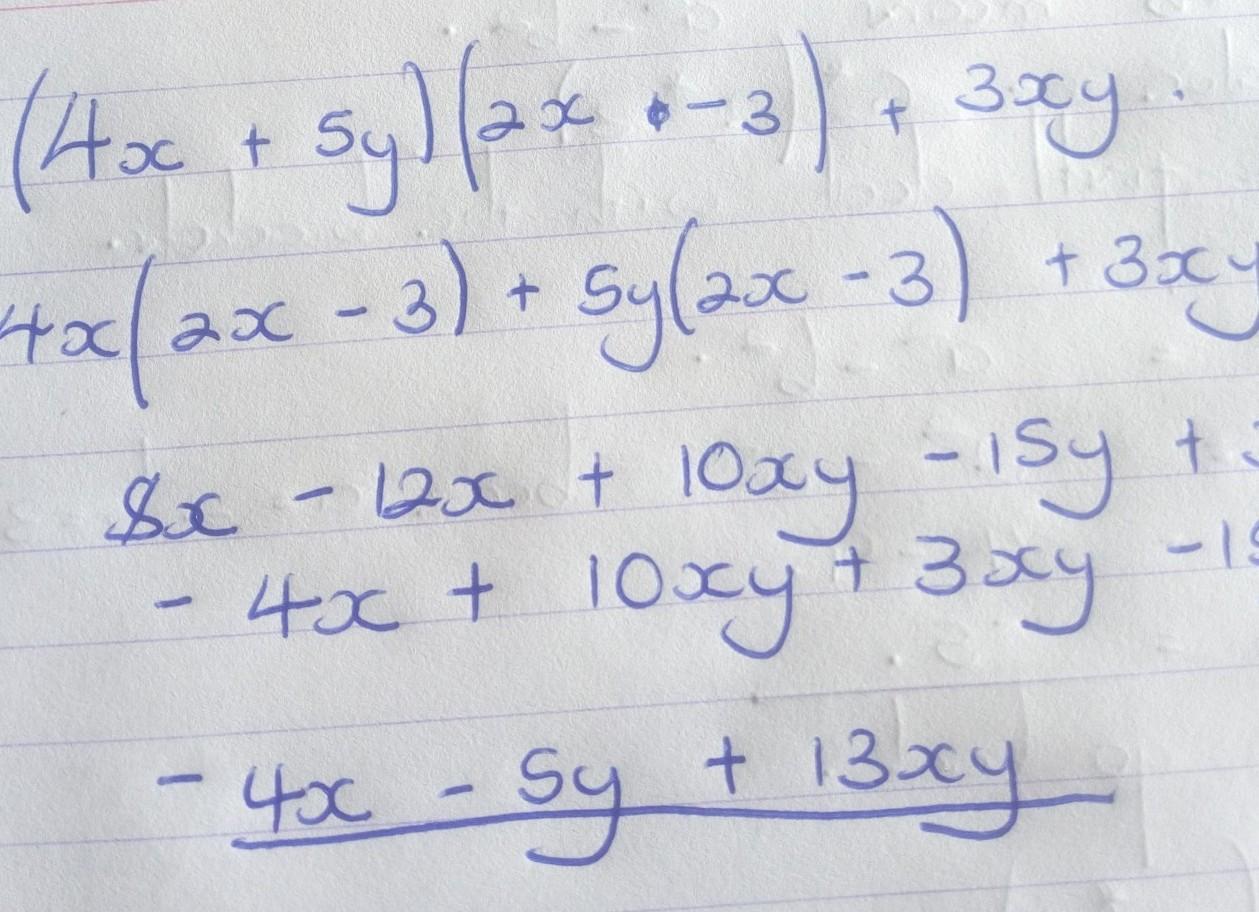 (4x + 5y)(2x - 3) + 3xy.
4x(2x - 3) + 5y(2x - 3) + 3xy
8x - 12x + 10xy - 15y +
- 4x + 10xy + 3xy -
- 4x - 5y + 13xy